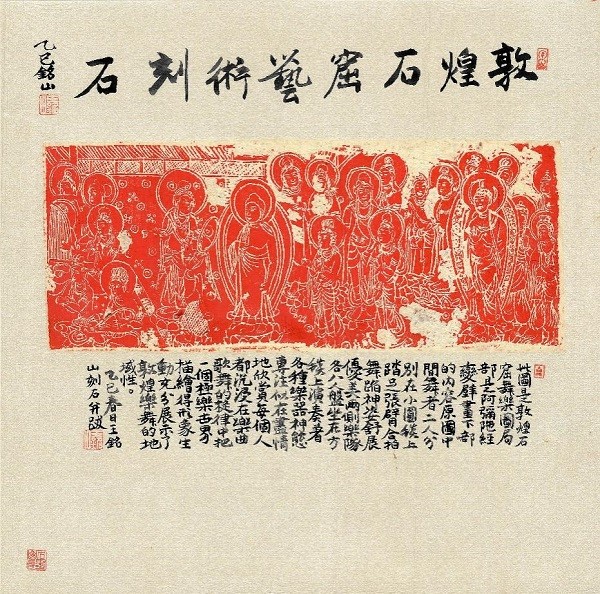 敦煌石窟藝術刻石
乙巳銘山
此圖是敦煌石
窟舞樂圖局
部是阿彌陀經
變壁畫下部
的內容原圖中
間舞者二人分
別在小圓毯上
踏足張臂合拍
舞蹈神姿舒展
優美兩側樂隊
各八人盤坐在方
毯上演奏者
各種樂器神態
專注似在盡情
地欣賞每個人
都沉浸在樂曲
歌舞的旋律中把
一個極樂世界
描繪得形象生
動充分展示了
敦煌樂舞的地
域性。
乙巳春日王銘
山刻石并跋